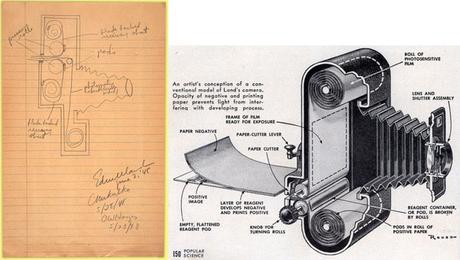 black backed
receiving sheet
pods
Edwin Land
5/25/48
5/25/48
An artist's conception of a con-
ventional model of Land's camera.
Opacity of negative and printing
paper prevents light from inter-
fering with developing process.
ROLL OF
PHOTOSENSITIVE
FILM
FRAME OF FILM
READY FOR EXPOSURE
LENS AND
SHUTTER ASSEMBLY
PAPER NEGATIVE
PAPER-CUTTER LEVER
PAPER CUTTER
POSITIVE
IMAGE
LAYER OF REAGENT
DEVELOPS NEGATIVE
AND PRINTS POSITIVE
EMPTY, FLATTENED
REAGENT POD
KNOB FOR
TURNING ROLLS
REAGENT CONTAINER,
OR POD, IS BROKEN
BY ROLLS
PODS IN ROLL OF
POSITIVE PAPER
150 POPULAR
SCIENCE